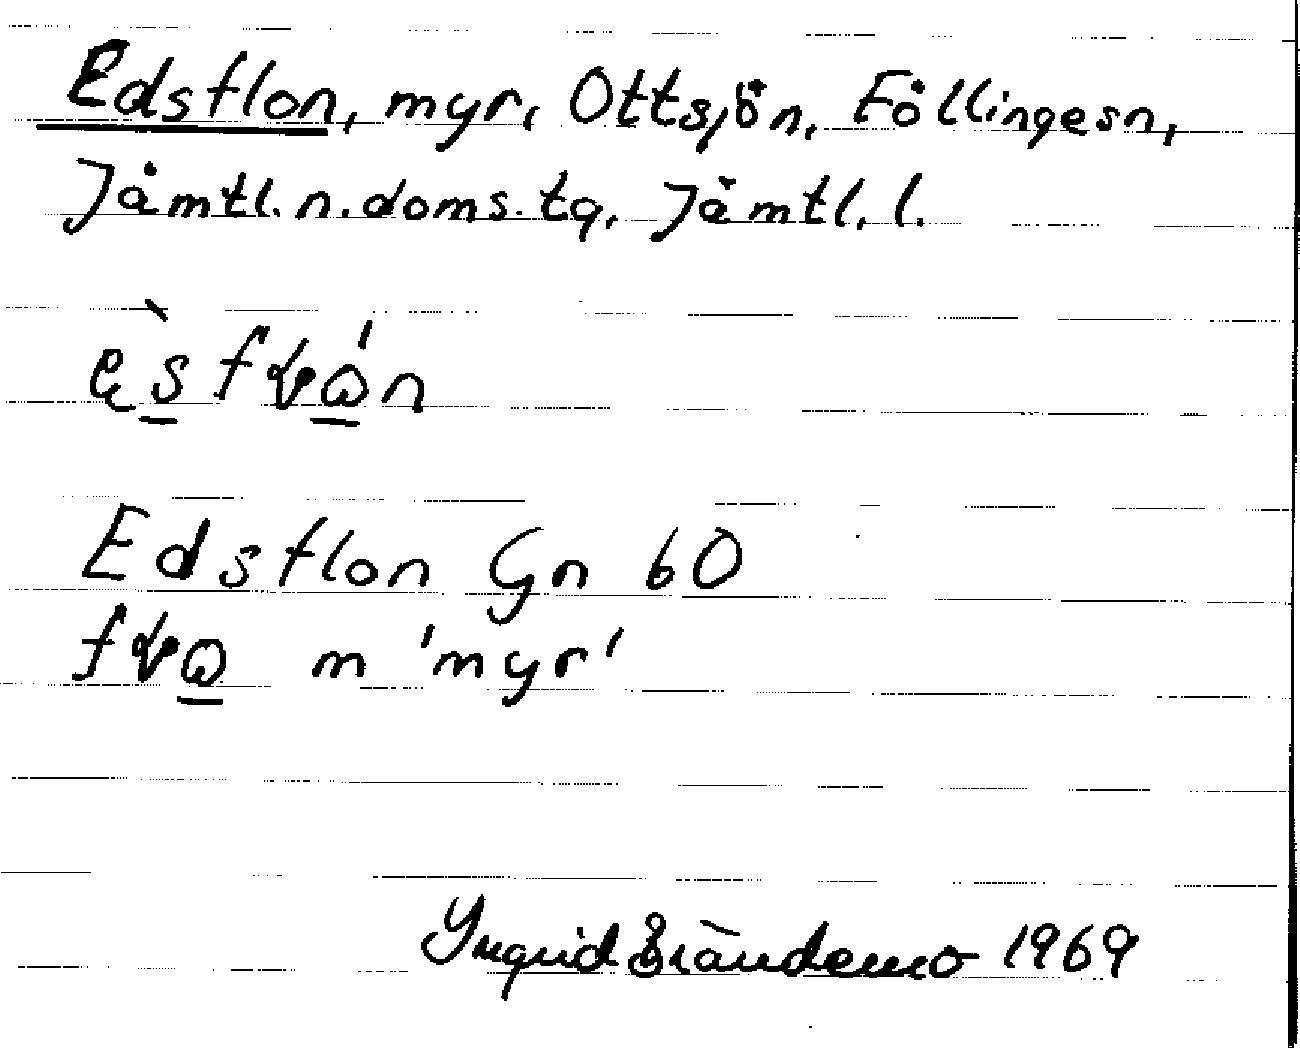 Edsflon, myr, Ottsjön, Föllinge sn,
Jämtl. n. doms. tg, Jämtl. l.
Edsflon Gn 60
m 'myr'
Ingrid Brändemo 1969